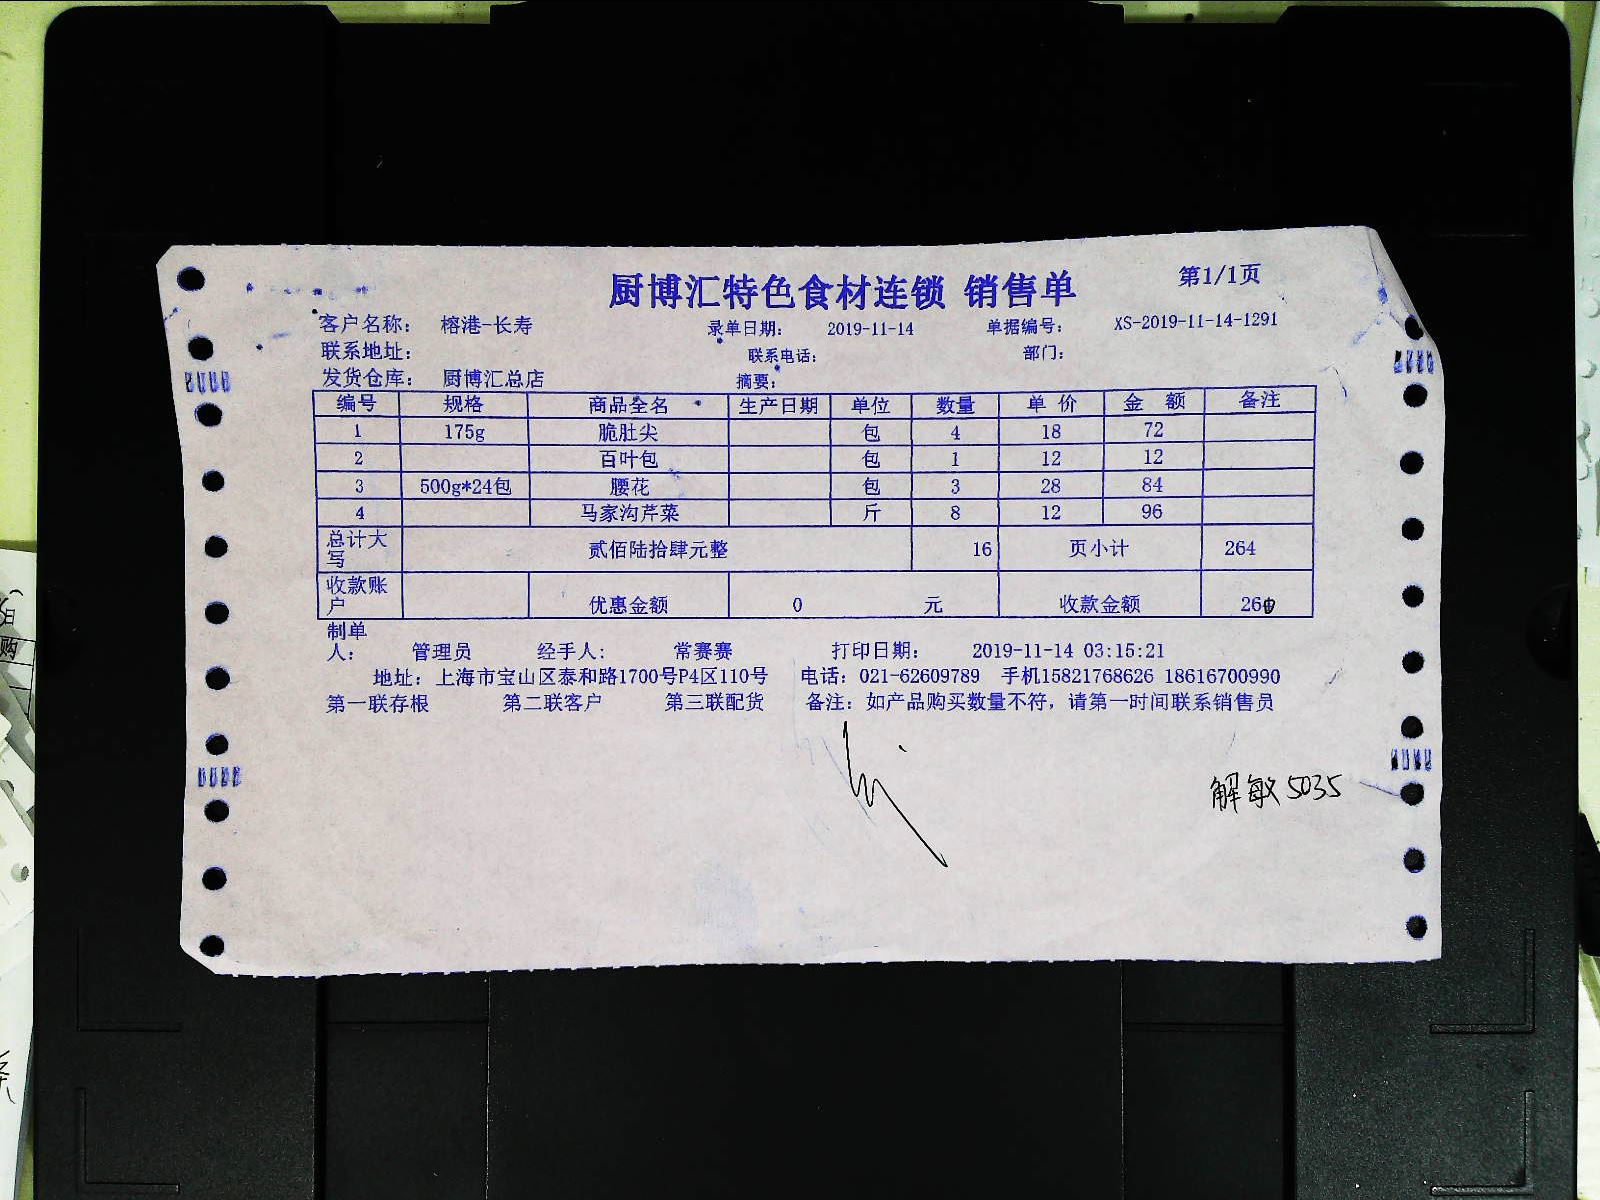 厨博汇特色食材连锁 销售单 第1/1页
客户名称： 榕港-长寿 录单日期： 2019-11-14 单据编号： XS-2019-11-14-1291
联系地址： 联系电话： 部门：
发货仓库： 厨博汇总店 摘要：
编号 规格 商品全名 生产日期 单位 数量 单 价 金 额 备注
1 175g 脆肚尖 包 4 18 72
2 百叶包 包 1 12 12
3 500g*24包 腰花 包 3 28 84
4 马家沟芹菜 斤 8 12 96
总计大写 贰佰陆拾肆元整 16 页小计 264
收款账户 优惠金额 0 元 收款金额
制单人： 管理员 经手人： 常赛赛 打印日期： 2019-11-14 03:15:21
地址：上海市宝山区泰和路1700号P4区110号 电话：021-62609789 手机15821768626 18616700990
第一联存根 第二联客户 第三联配货 备注：如产品购买数量不符，请第一时间联系销售员
解敏5035